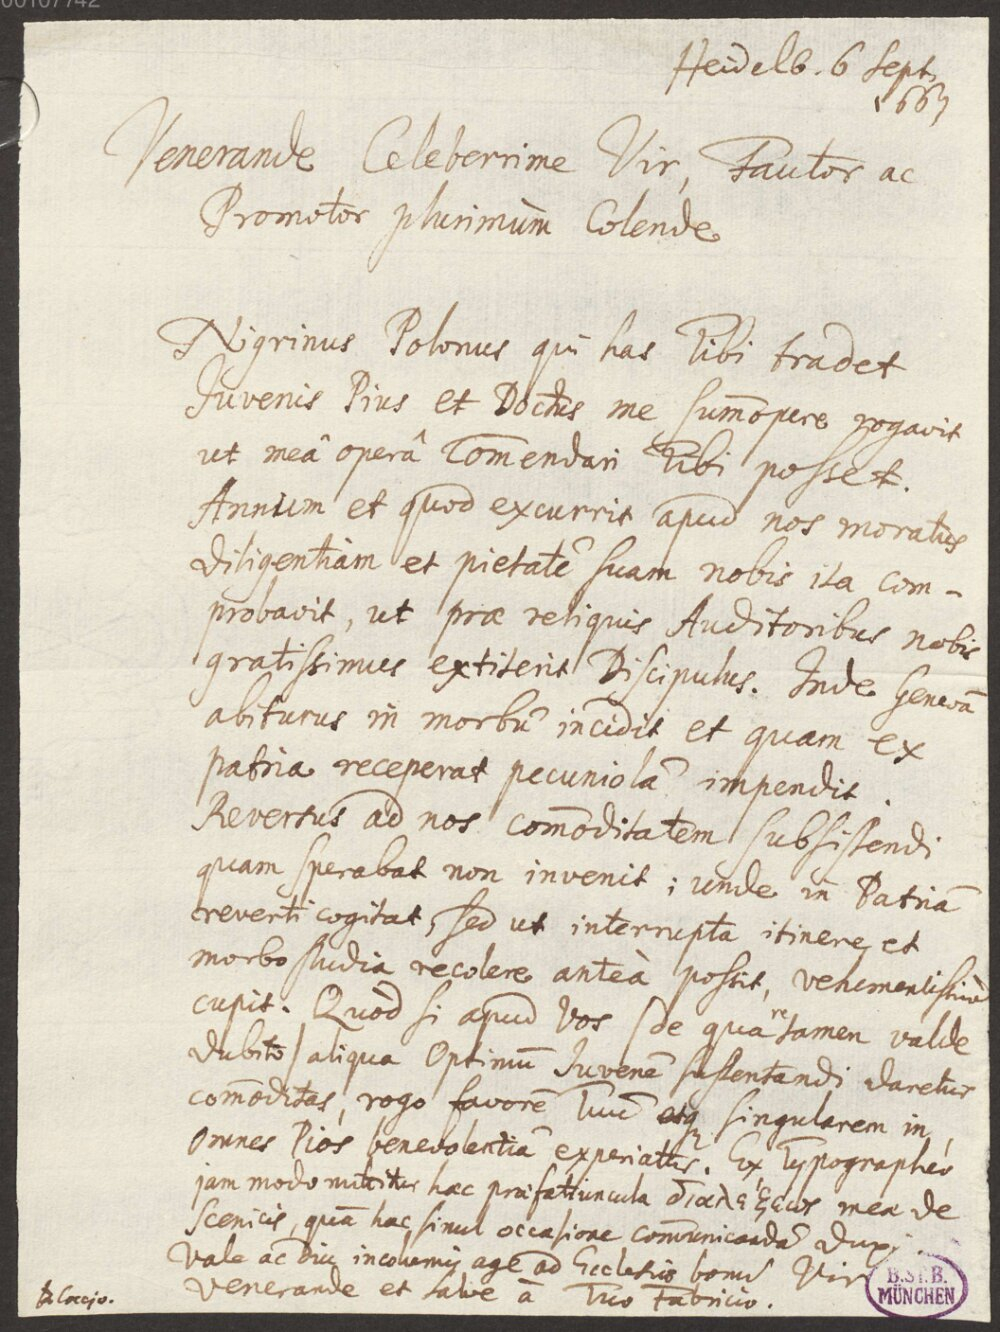 00107742
Heidelb. 6 Sept.
1663
Venerande Celeberrime Vir, Fautor ac
Promotor plurimùm Colende
Nigrinus Polonus qui has Tibi tradet
Juvenis Pius et Doctus me sum̄opere rogavit
ut meâ operâ Com̄endari Tibi posset.
Annum et quod excurrit apud nos moratus
diligentiam et pietatē suam nobis ita com-
probavit, ut prae reliquis Auditoribus nobis
gratissimus extiterit Discipulus. Inde Genevā
abiturus in morbū incidit et quam ex
patria receperat pecuniolā impendit.
Reversus ad nos com̄oditatem subsistendi
quam sperabat non invenit; unde in Patriā
reverti cogitat, sed ut interrupta itinere et
morbo studia recolere anteà possit, vehementissimè
cupit. Quòd si apud Vos /de quâ re tamen valde
dubito/ aliqua Optimū Juvenē sustentandi daretur
com̄oditas, rogo favorē Tuū singularem in
omnes Pios benevolentiā experiatur. Ex Typographeo
jam modo mittitur haec praefatiuncula διαλέξεως meae de
Scenicis, quā hac simul occasione com̄unicandā duxi.
Vale ac Diu incolumis age ad Ecclesiae bonū Vir
Venerande et salve à Tuo Fabricio.
D. Coccejo.
B.ST.B.
MÜNCHEN